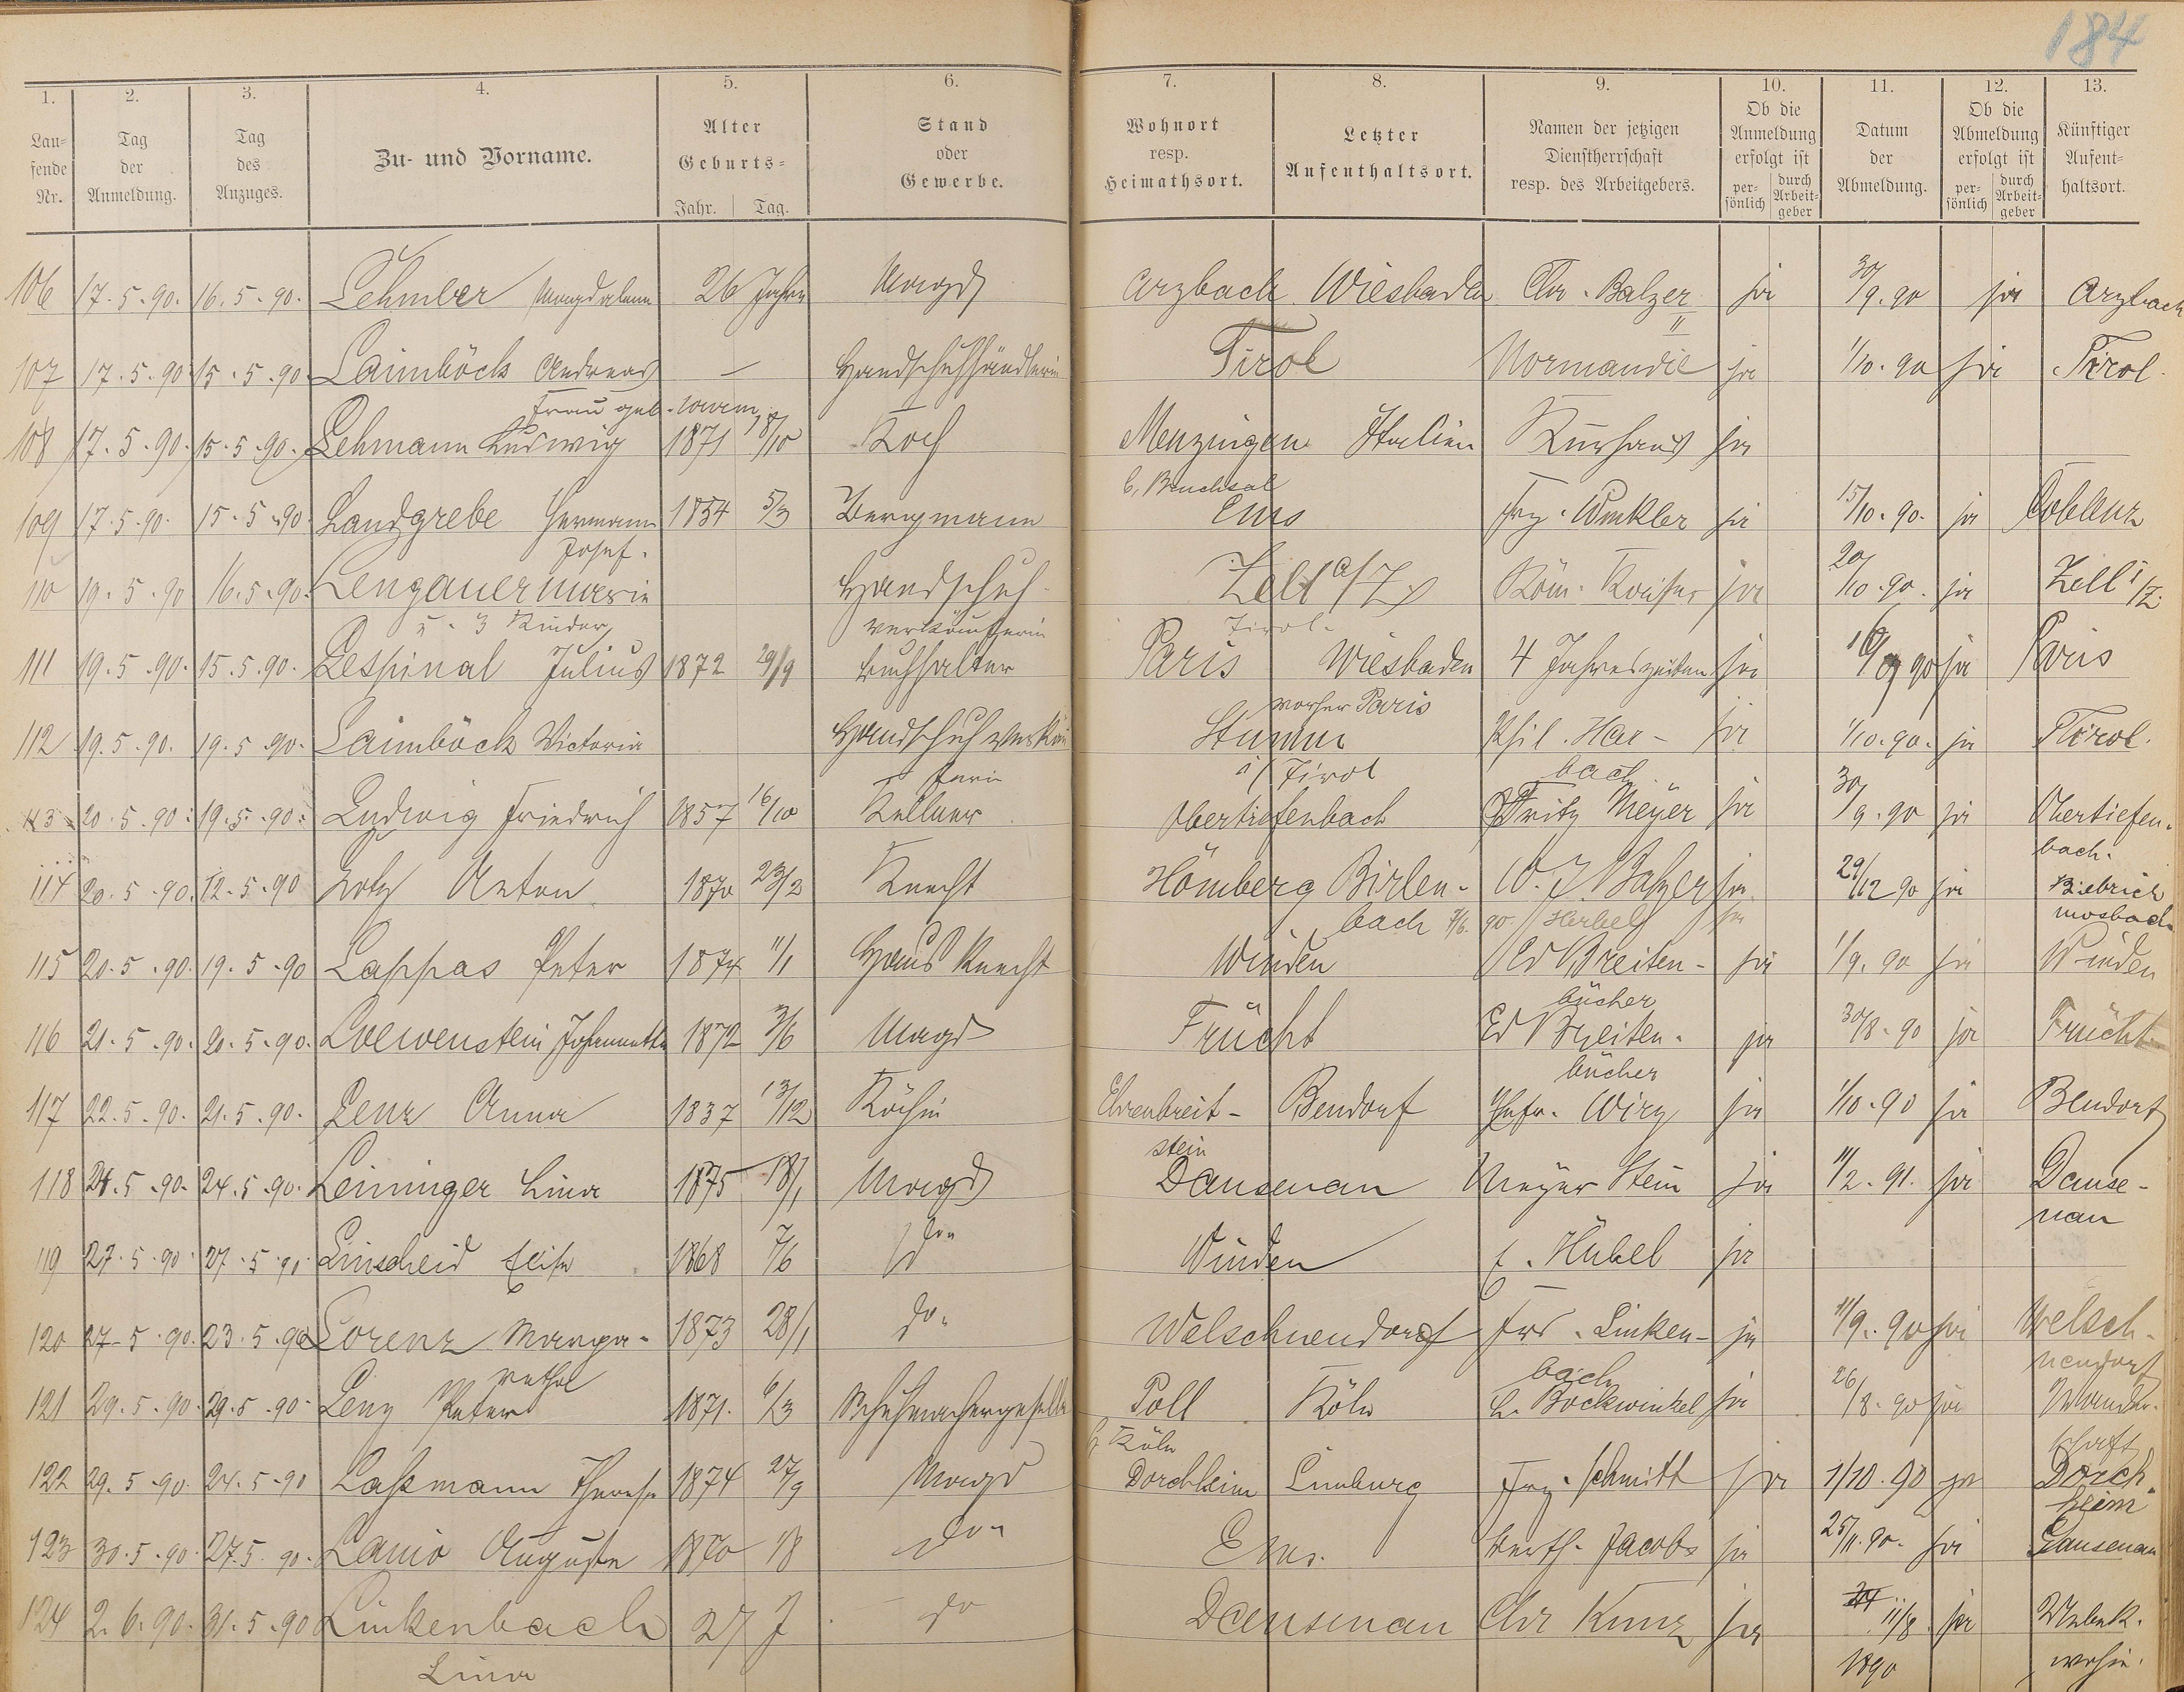 184
1. 2. 3. 4. 5. 6. 7. 8. 9. 10. 11. 12. 13.
Lau-
fende
Nr.
Tag
der
Anmeldung.
Tag
des
Anzuges.
Zu- und Vorname.
Alter
Geburts-
Jahr. Tag.
Stand
oder
Gewerbe.
Wohnort
resp.
Heimathsort.
Letzter
Aufenthaltsort.
Namen der jetzigen
Dienstherrschaft
resp. des Arbeitgebers.
Ob die
Anmeldung
erfolgt ist
per-
sönlich
durch
Arbeit-
geber
Datum
der
Abmeldung.
Ob die
Abmeldung
erfolgt ist
per-
sönlich
durch
Arbeit-
geber
Künftiger
Aufent-
haltsort.
106 17.5.90. 16.5.90. Magdalena 26 Jahre Magd Arzbach Wiesbaden Chr. Balzer ja 30/9.90 ja Arzbach
II
107 17.5.90 15.5.90. Laimböck Andreas — Handschuhhändlerin Tirol Normandie ja 1/10.90 ja Tirol.
Frau geb.
108 17.5.90. 15.5.90. Lehmann Ludwig 1871 18/10 Koch Menzingen Italien Kurhaus ja
b. Bruchsal
109 17.5.90. 15.5.90. Landgrebe Hermann 1854 5/3 Bergmann Ems Frz. Winkler ja 15/10.90. ja Coblenz
Josef.
110 19.5.90 16.5.90. Lengauer Marie Handschuh- Zell a/Z Röm. Kaiser ja 20/10.90. ja Zell i/Z.
u. 3 Kinder verkäuferin Tirol.
111 19.5.90. 15.5.90. Lespinal Julius 1872 29/9 Buchhalter Paris Wiesbaden 4 Jahreszeiten ja 90 ja Paris
vorher Paris
112 19.5.90. 19.5.90. Laimböck Victoria Handschuhverkäu- Stumm Phil. Hax- ja 1/10.90. ja Tirol.
ferin i/Tirol bach
113 20.5.90. 19.5.90. Ludwig Friedrich 1857 16/10 Kellner Obertiefenbach Fritz Meyer ja 30/9.90 ja Obertiefen-
bach.
114 20.5.90. 12.5.90 Lotz Anton 1870 23/2 Knecht Hömberg Birlen- W. J. Balzer ja 29/12 90 ja Biebrich
bach 7/6. 90. Herbel ja mosbach
115 20.5.90. 19.5.90 Lappas Peter 1874 11/1 Hausknecht Winden Ed Breiten- ja 1/9.90 ja Winden
bücher
116 21.5.90. 20.5.90. Loewenstein Johannette 1872 3/6 Magd Frücht Ed Breiten- ja 30/8.90 ja Frücht
bücher
117 22.5.90. 21.5.90. Lenz Anna 1837 13/12 Köchin Ehrenbreit- Bendorf Wirz ja 1/10.90 ja Bendorf
stein
118 24.5.90. 24.5.90. Leininger Lina 1875 18/1 Magd Dausenau Meyer Stein ja 11/2.91. ja Dause-
nau
119 27.5.90. 27.5.90. Linscheid Elise 1868 7/6 do. Winden Hübel ja
120 27.5.90. 23.5.90 Lorenz Marga- 1873 28/1 do. Welschneudorf Frd. Linken- ja 11/9.90 ja Welsch-
retha bach neudorf
121 29.5.90. 29.5.90. Lenz Peter 1871. 6/3 Schuhmachergeselle Poll Köln Bockwinkel ja 26/8.90 ja Wander-
b. Köln schaft
122 29.5.90. 24.5.90 Laßmann Therese 1874 27/9 Magd Dorchheim Limburg Frz. Schmitt ja 1/10.90 ja Dorch-
heim
123 30.5.90. 27.5.90. Auguste 1870 18 do. Ems. Jacobs ja 25/11.90. ja Dausenau
124 2.6.90. 31.5.90 Linkenbach 27 J do Dausenau Chr Kunz ja 11/8 ja Unbek.
Lina 1890 wohin.